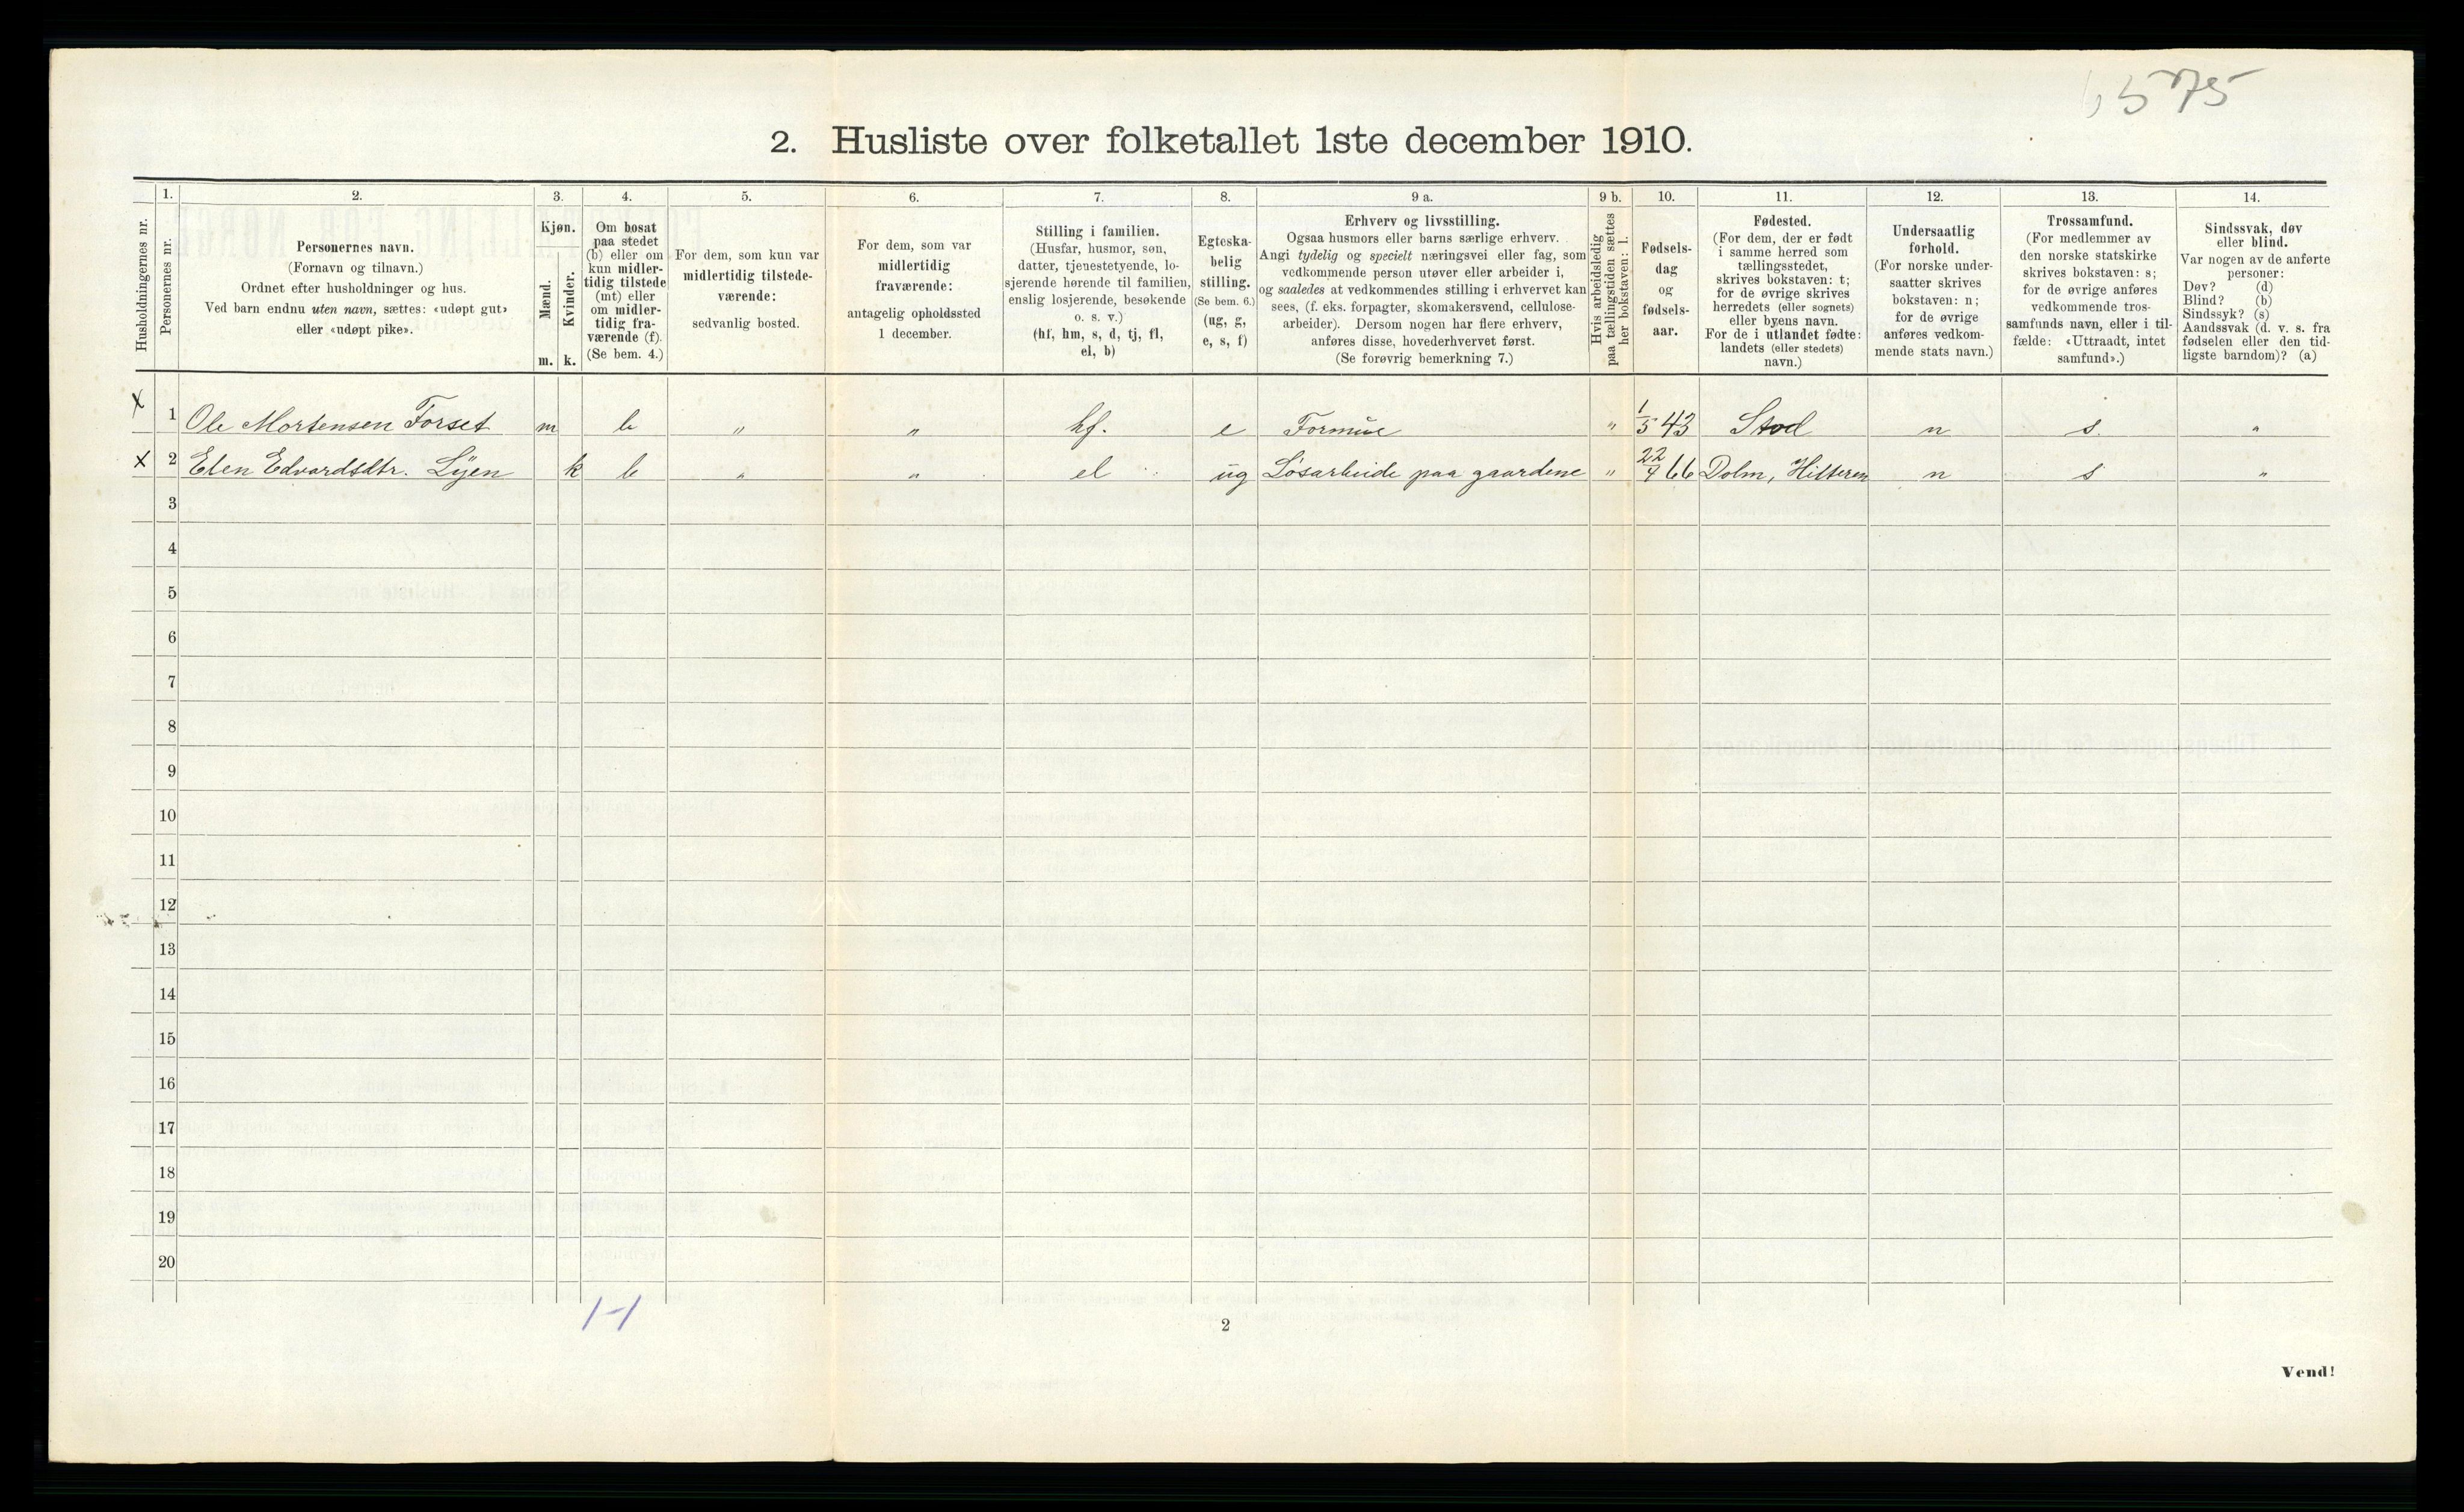 6575
2. Husliste over folketallet 1ste december 1910.
Husholdningernes nr.
1.
Personernes nr.
2.
Personernes navn.
(Fornavn og tilnavn.)
Ordnet efter husholdninger og hus.
Ved barn endnu uten navn, sættes: «udøpt gut»
eller «udøpt pike».
3.
Kjøn.
Mænd.
Kvinder.
m. k.
4.
Om bosat
paa stedet
(b) eller om
kun midler-
tidig tilstede
(mt) eller
om midler-
tidig fra-
værende (f).
(Se bem. 4.)
5.
For dem, som kun var
midlertidig tilstede-
værende:
sedvanlig bosted.
6.
For dem, som var
midlertidig
fraværende:
antagelig opholdssted
1 december.
7.
Stilling i familien.
(Husfar, husmor, søn,
datter, tjenestetyende, lo-
sjerende hørende til familien,
enslig losjerende, besøkende
o. s. v.)
(hf, hm, s, d, tj, fl,
el, b)
8.
Egteska-
belig
stilling.
(Se bem. 6.)
(ug, g,
e, s, f)
9 a.
Erhverv og livsstilling.
Ogsaa husmors eller barns særlige erhverv.
Angi tydelig og specielt næringsvei eller fag, som
vedkommende person utøver eller arbeider i,
og saaledes at vedkommendes stilling i erhvervet kan
sees, (f. eks. forpagter, skomakersvend, cellulose-
arbeider). Dersom nogen har flere erhverv,
anføres disse, hovederhvervet først.
(Se forøvrig bemerkning 7.)
9 b.
Hvis arbeidsledig
paa tællingstiden sættes
her bokstaven: l.
10.
Fødsels-
dag
og
fødsels-
aar.
11.
Fødested.
(For dem, der er født
i samme herred som
tællingsstedet,
skrives bokstaven: t;
for de øvrige skrives
herredets (eller sognets)
eller byens navn.
For de i utlandet fødte:
landets (eller stedets)
navn.)
12.
Undersaatlig
forhold.
(For norske under-
saatter skrives
bokstaven: n;
for de øvrige
anføres vedkom-
mende stats navn.)
13.
Trossamfund.
(For medlemmer av
den norske statskirke
skrives bokstaven: s;
for de øvrige anføres
vedkommende tros-
samfunds navn, eller i til-
fælde: «Uttraadt, intet
samfund».)
14.
Sindssvak, døv
eller blind.
Var nogen av de anførte
personer:
Døv? (d)
Blind? (b)
Sindssyk? (s)
Aandssvak (d. v. s. fra
fødselen eller den tid-
ligste barndom)? (a)
x 1 Ole Mortensen Forset m b " " hf. e Formue " 1/5 43 Stod n s. "
x 2 Elen Edvardsdtr. Lyen k b " " el ug Løsarbeide paa gaardene " 22/9 66 Dolm, Hitteren n s "
3
4
5
6
7
8
9
10
11
12
13
14
15
16
17
18
19
20
1-1
2
Vend!